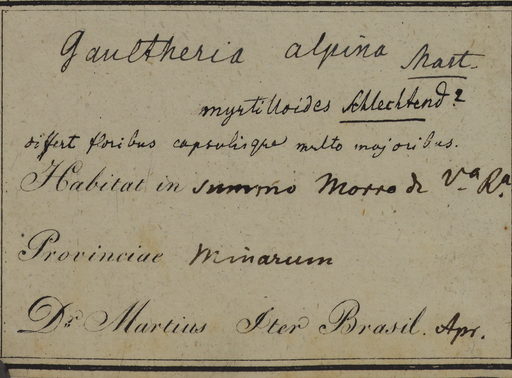 Gaultheria alpina Mart.
myrtilloides Schlechtend?
differt floribus capsulisque multo majoribus.
Habitat in summo Morro de Va. Ra.
Provinciae Minarum
Dr. Martius Iter Brasil. Apr.